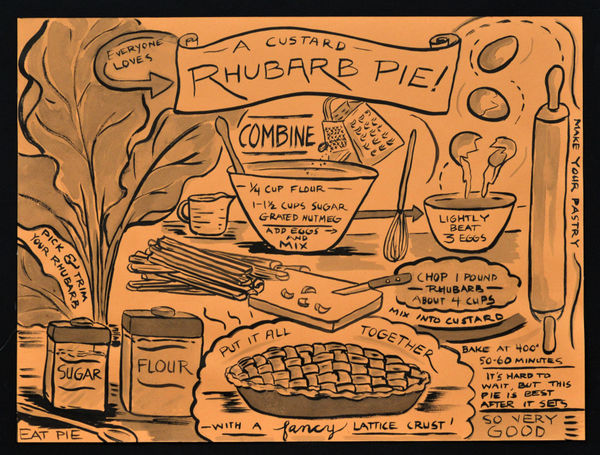 EVERYONE
LOVES
A CUSTARD
RHUBARB PIE!
COMBINE
1/4 CUP FLOUR
1-1½ CUPS SUGAR
GRATED NUTMEG
ADD EGGS →
AND
MIX
LIGHTLY
BEAT
3 EGGS
MAKE YOUR PASTRY
PICK & TRIM
YOUR RHUBARB
CHOP 1 POUND
RHUBARB
ABOUT 4 CUPS
MIX INTO CUSTARD
SUGAR
FLOUR
PUT IT ALL TOGETHER
WITH A fancy LATTICE CRUST!
BAKE AT 400°
50-60 MINUTES
IT'S HARD TO
WAIT, BUT THIS
PIE IS BEST
AFTER IT SETS
SO VERY
GOOD
EAT PIE